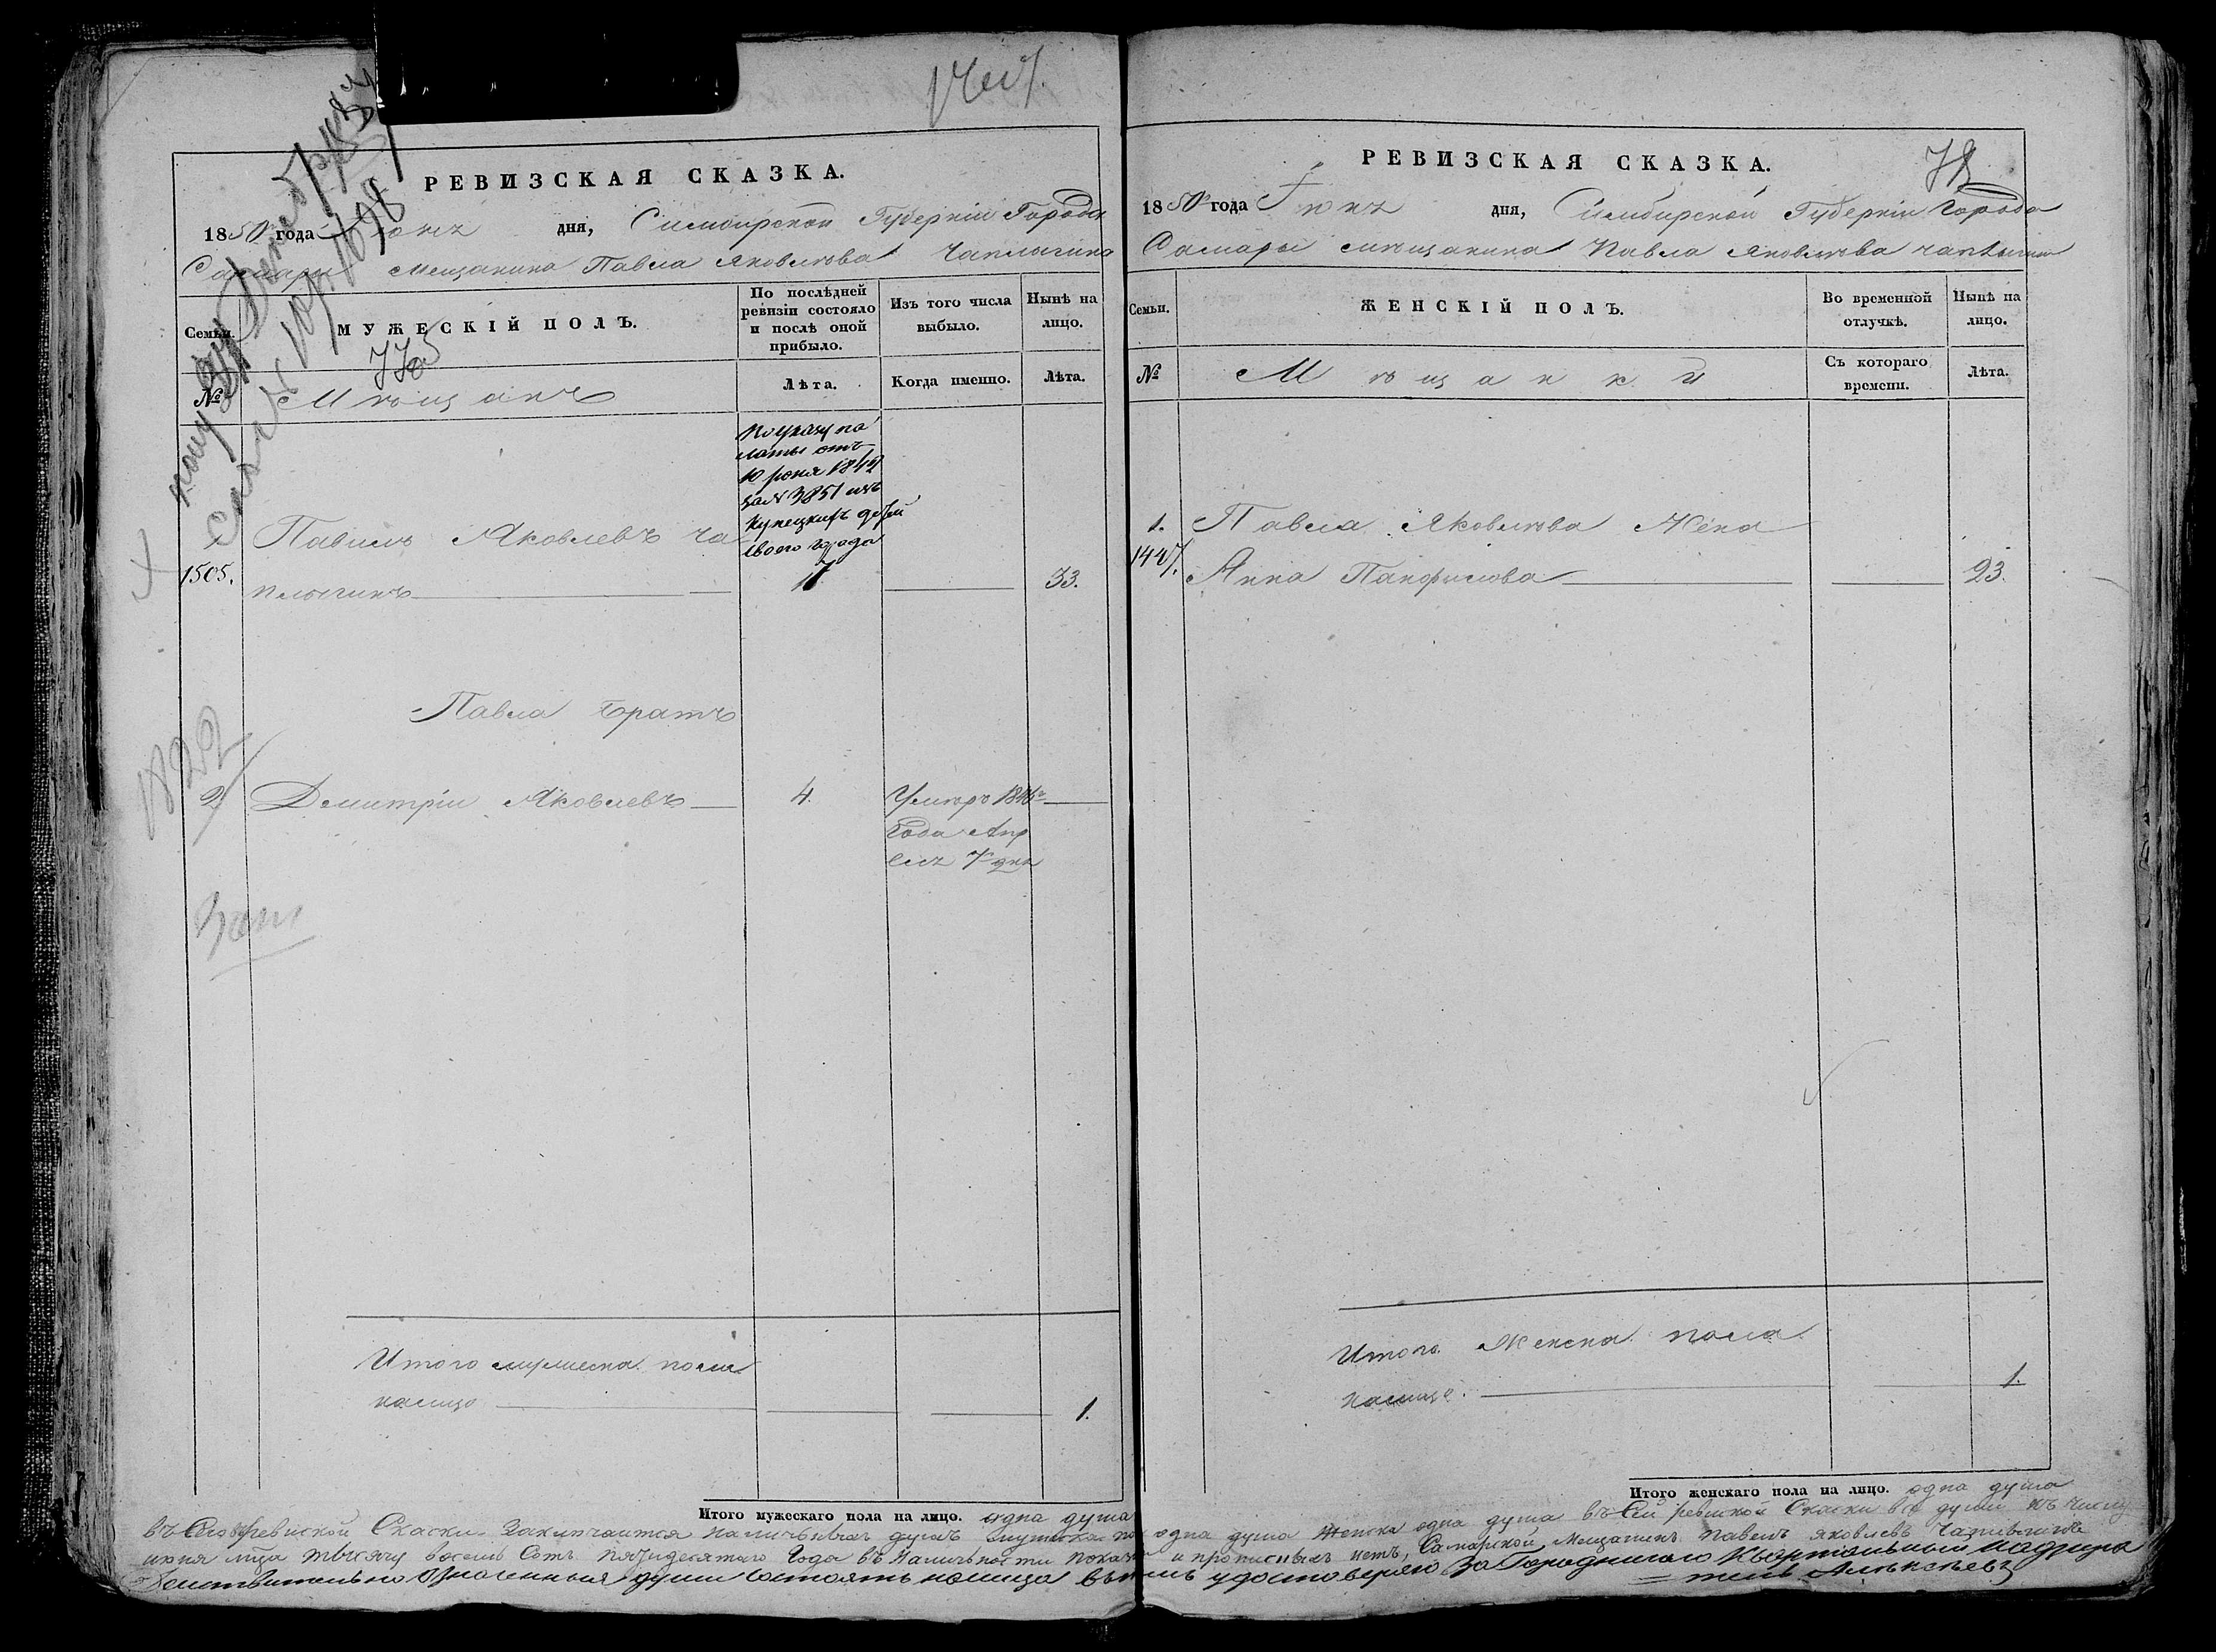 РЕВИЗСКАЯ СКАЗКА.
1850 года Іюня дня, Симбирской Губерніи Города
Самары мещанина Павла Яковлева Чаплыгина
Семьи.
МУЖЕСКІЙ ПОЛЪ.
По послѣдней ревизіи состояло и послѣ оной прибыло.
Изъ того числа выбыло.
Нынѣ на лицо.
№
Мѣщанъ
Лѣта.
Когда именно.
Лѣта.
По указу па
латы отъ
10 іюня
за № 3851 изъ
купецкихъ детей
своего города
1505.
Павилъ Яковлевъ Ча
плыгинъ
33.
Павла братъ
1822
2
Демитріи Яковлевъ
4.
Умеръ 1846
года Апр
еля 7 дня
Итого мужеска пола
налицо
1.
Итого мужескаго пола на лицо. одна душа
РЕВИЗСКАЯ СКАЗКА.
1850 года Іюня дня, Симбирской Губерніи Города
Самары мѣщанина Павла Яковлева Чаплыгина
Семьи.
ЖЕНСКІЙ ПОЛЪ.
Во временной отлучкѣ.
Нынѣ на лицо.
№
Мѣщанки
Съ котораго времени.
Лѣта.
1.
Павла Яковлева Жена
1447.
Анна Панфилова
23.
Итого Женска пола
налицо.
1.
Итого женскаго пола на лицо. одна душа
въ ревиской Скаски Заключается наличныхъ душъ одна душа Женска одна душа въ Сей ревиской Скаски все души къ числу
июня мца тысячу восемь Сотъ пятидесятаго Года въ Наличности показаны и прописныхъ нетъ, Самарской Мещанинъ Павелъ Яковлевъ Чаплыгинъ
действительно означенныя души состоятъ налицо въ томъ удостоверяю За Городничаго Квартальный Надзира
тель Алексеевъ